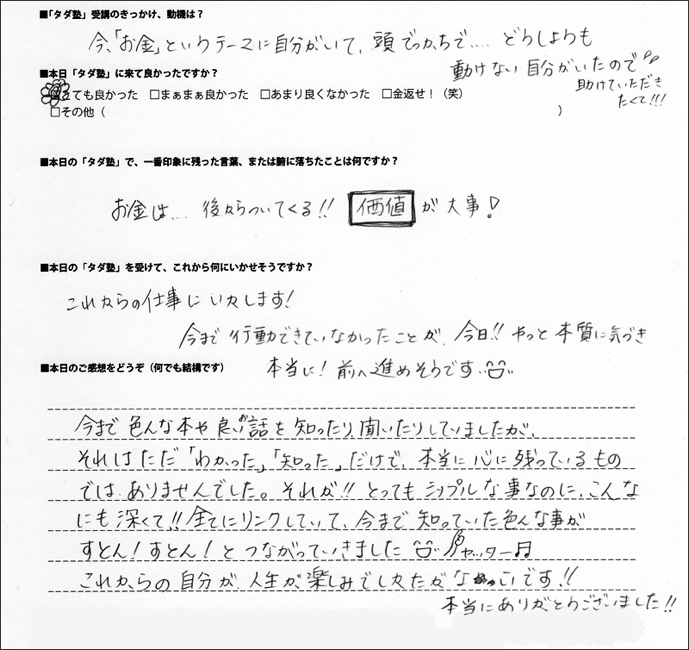 ■「タダ塾」受講のきっかけ、動機は？
今、「お金」というテーマに自分がいて、頭でっかちで‥‥ どうしようも
動けない自分がいたので
助けていただき
たくて!!!
■本日「タダ塾」に来て良かったですか？
□とても良かった □まぁまぁ良かった □あまり良くなかった □金返せ！（笑）
□その他（ ）
■本日の「タダ塾」で、一番印象に残った言葉、または腑に落ちたことは何ですか？
お金は… 後からついてくる!! 価値 が大事!
■本日の「タダ塾」を受けて、これから何にいかせそうですか？
これからの仕事にいかします!
今まで行動できていなかったことが、今日!! やっと本質に気づき
本当に! 前へ進めそうです
■本日のご感想をどうぞ（何でも結構です）
今まで色んな本や良い話を知ったり、聞いたりしていましたが、
それはただ「わかった」「知った」だけで、本当に心に残っているもの
ではありませんでした。それが!! とってもシンプルな事なのに、こんな
にも深くて!! 全てにリンクしていて、今まで知っていた色んな事が
すとん! すとん! とつながっていきました ヤッター♫
これからの自分が、人生が、楽しみでしかたがないです!!
本当にありがとうございました!!